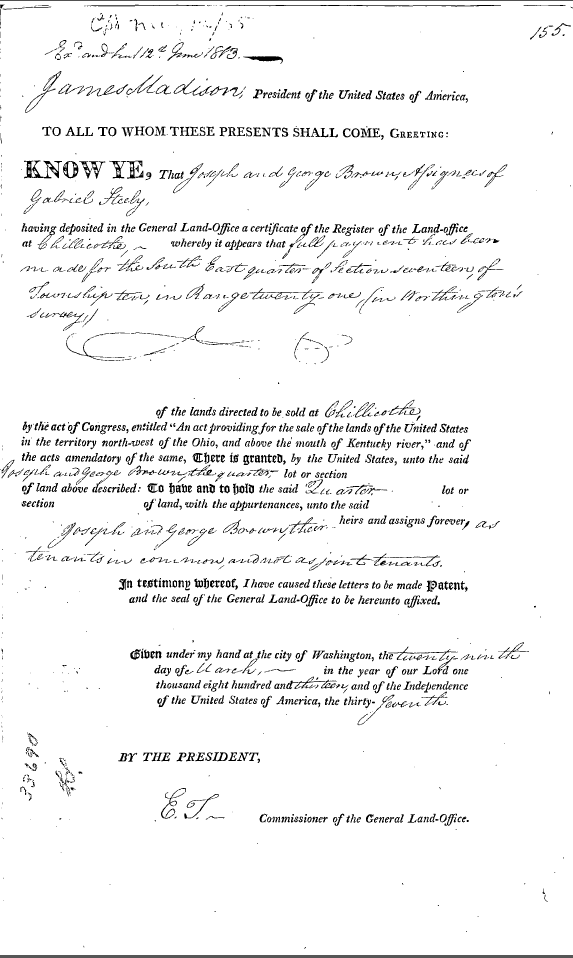 155.
Exd. and ent 12th June 1813.
James Madison, President of the United States of America,
TO ALL TO WHOM THESE PRESENTS SHALL COME, GREETING:
KNOW YE, That Joseph and George Brown, Assignees of
Gabriel Steely,
having deposited in the General Land-Office a certificate of the Register of the Land-office
at Chillicothe, ~ whereby it appears that full payment has been
made for the South East quarter of Section seventeen, of
Township ten, in Range twenty one, (in Worthington's
survey,)
of the lands directed to be sold at Chillicothe,
by the act of Congress, entitled "An act providing for the sale of the lands of the United States
in the territory north-west of the Ohio, and above the mouth of Kentucky river," and of
the acts amendatory of the same, There is granted, by the United States, unto the said
Joseph and George Brown, the quarter lot or section
of land above described: To have and to hold the said Quarter lot or
section of land, with the appurtenances, unto the said
Joseph and George Brown, their heirs and assigns forever, as
tenants in common, and not as joint tenants.
In testimony whereof, I have caused these letters to be made Patent,
and the seal of the General Land-Office to be hereunto affixed.
Given under my hand at the city of Washington, the twenty ninth
day of March, ~ in the year of our Lord one
thousand eight hundred and thirteen, and of the Independence
of the United States of America, the thirty-seventh.
BY THE PRESIDENT,
E. T. ~ Commissioner of the General Land-Office.
33690